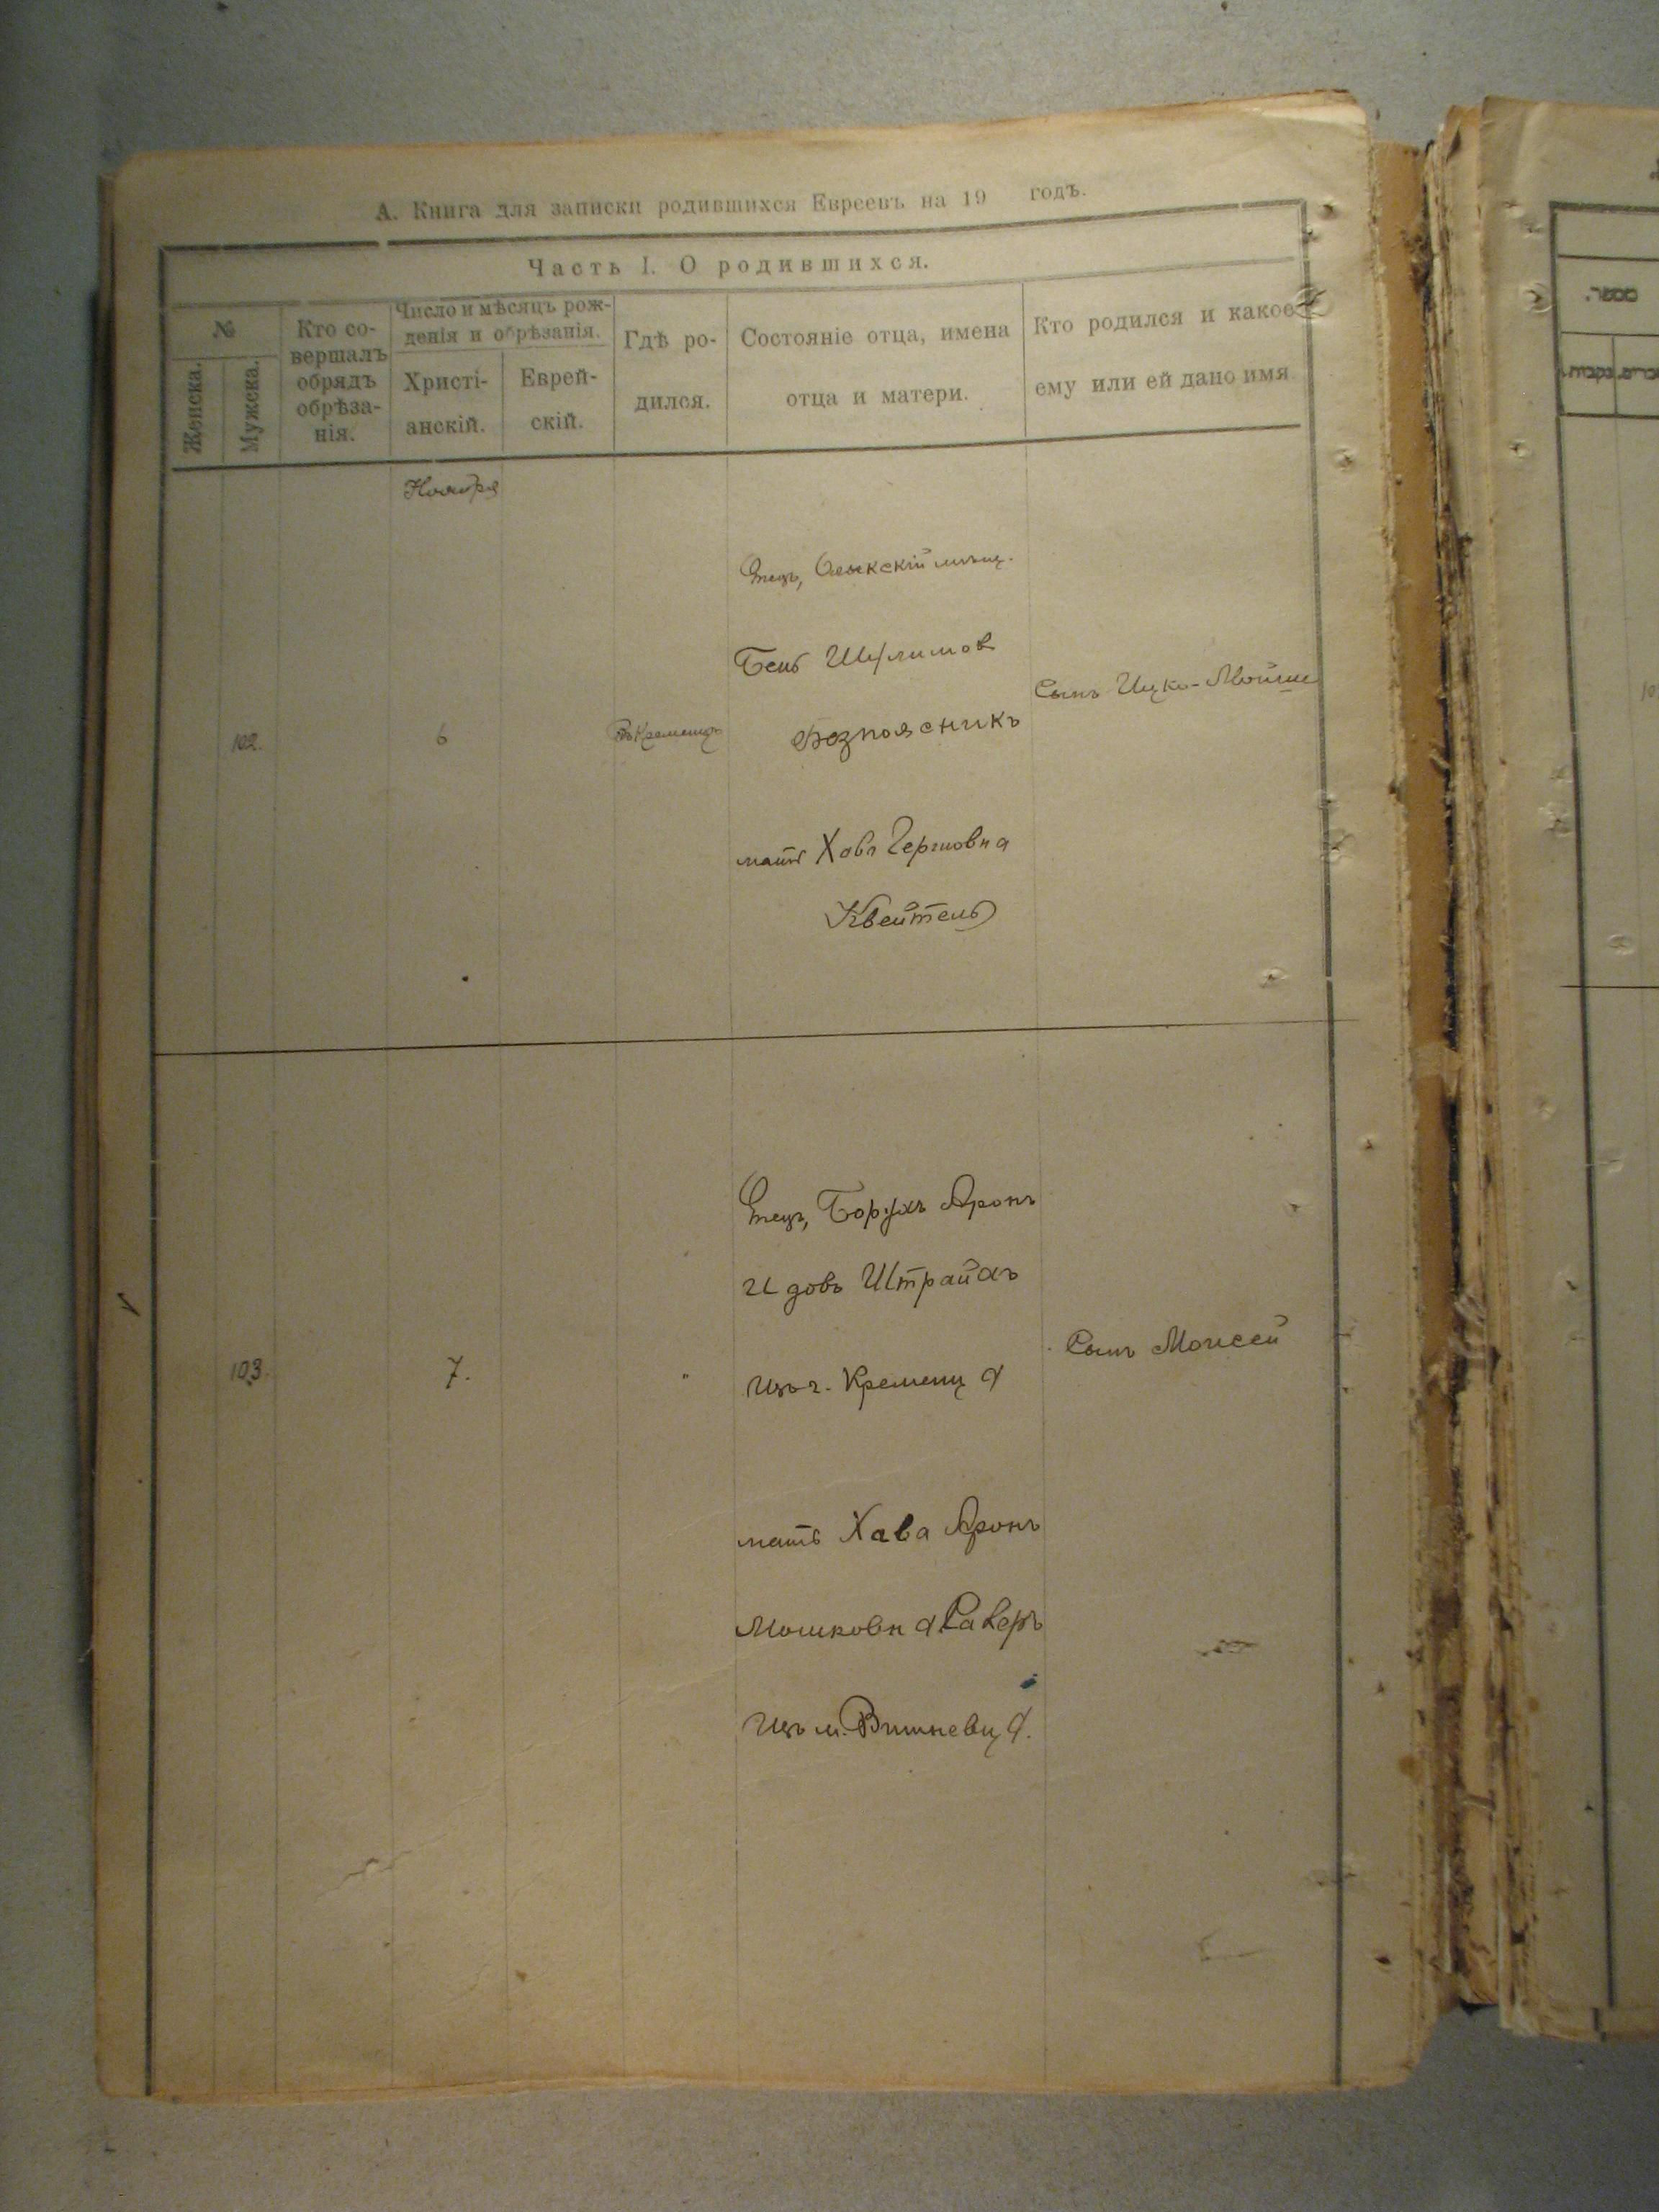 А. Книга для записки родившихся Евреевъ на 19 годъ.
Часть I. О родившихся.
№
Женска.
Мужска.
Кто со-
вершалъ
обрядъ
обрѣза-
нія.
Число и мѣсяцъ рож-
денія и обрѣзанія.
Христі-
анскій.
Еврей-
скій.
Гдѣ ро-
дился.
Состояніе отца, имена
отца и матери.
Кто родился и какое
ему или ей дано имя
Ноября
102.
6
Кременцѣ
Отецъ, Олыкскій мѣщ.
Бень
Безпоясникъ
мать Хава Гершовна
Квейтель
Сынъ Ицко-Мойше
103.
7.
"
Отецъ, Борухъ Аронъ
Идовъ Штрайхъ
Изъ г. Кременца
мать Хава Аронъ
Мошковна
Изъ м. Вишневца.
Сынъ Моисей